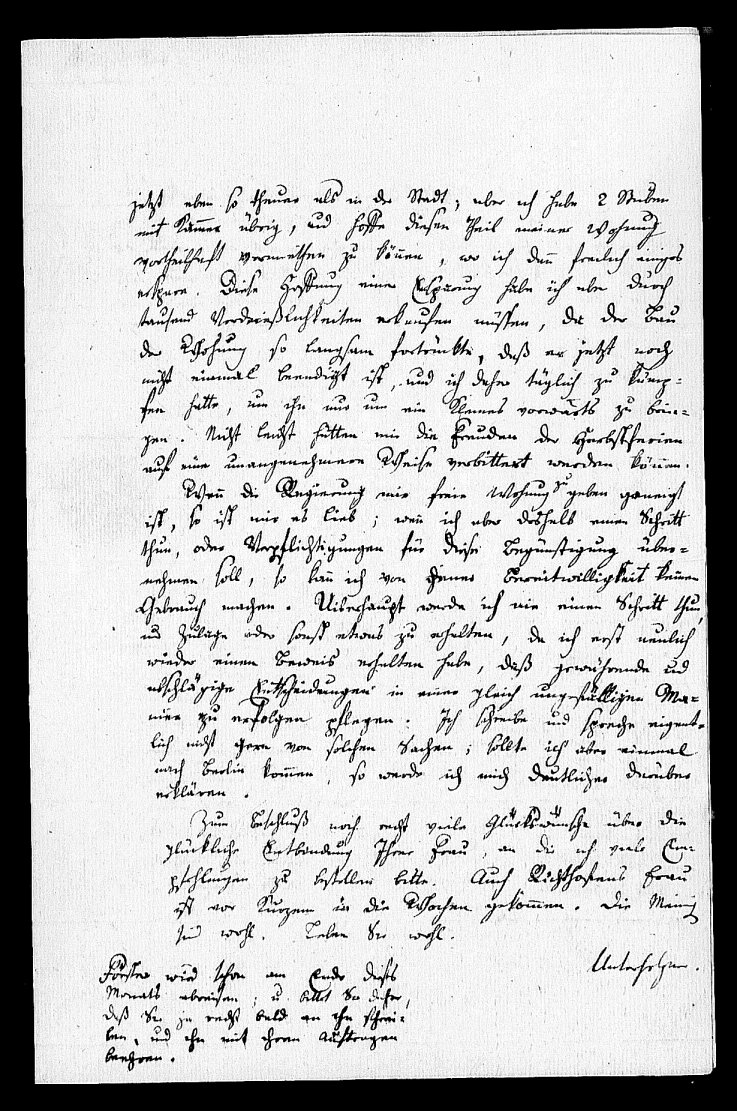 jetzt eben so theuer als in der Stadt; aber ich habe 2 Stuben
mit Kammer übrig, und hoffe diesen Theil meiner Wohnung
vortheilhaft vermiethen zu können, wo ich dann freilich einiges
erspare. Diese Hoffnung einer Ersparung habe ich aber durch
tausend Verdrießlichkeiten erkaufen müssen, da der Bau
der Wohnung so langsam fortrückte, daß er jetzt noch
nicht einmal beendigt ist, und ich daher täglich zu kämp-
fen hatte, um ihn nur um ein Kleines vorwärts zu brin-
gen. Nicht leicht hätten mir die Freuden der Herbstferien
auf eine unangenehmere Weise verbittert werden können.
Wenn die Regierung mir freie Wohnung zu geben geneigt
ist, so ist mir es lieb; wenn ich aber deshalb einen Schritt
thun, oder Verpflichtigungen für diese Begünstigung über-
nehmen soll, so kann ich von jener Bereitwilligkeit keinen
Gebrauch machen. Ueberhaupt werde ich nie einen Schritt thun,
um Zulage oder sonst etwas zu erhalten, da ich erst neulich
wieder einen Beweis erhalten habe, daß gewährende und
abschlägige Entscheidungen in einer gleich ungefälligen Ma-
nier zu erfolgen pflegen. Ich schreibe und spreche eigent-
lich nicht gern von solchen Sachen; sollte ich aber einmal
nach Berlin kommen, so werde ich mich deutlicher darüber
erklären.
Zum Beschluß noch recht viele Glückswünsche über die
glückliche Entbindung Ihrer Frau, an die ich viele Em-
pfehlungen zu bestellen bitte. Auch Richthofens Frau
ist vor Kurzem in die Wochen gekommen. Die Meinig
sind wohl. Leben Sie wohl.
Unterholzner.
Förster wird schon am Ende dieses
Monats abreisen; u. bittet Sie daher,
daß Sie ja recht bald an ihn schrei-
ben, und ihn mit Ihren Aufträgen
beehren.